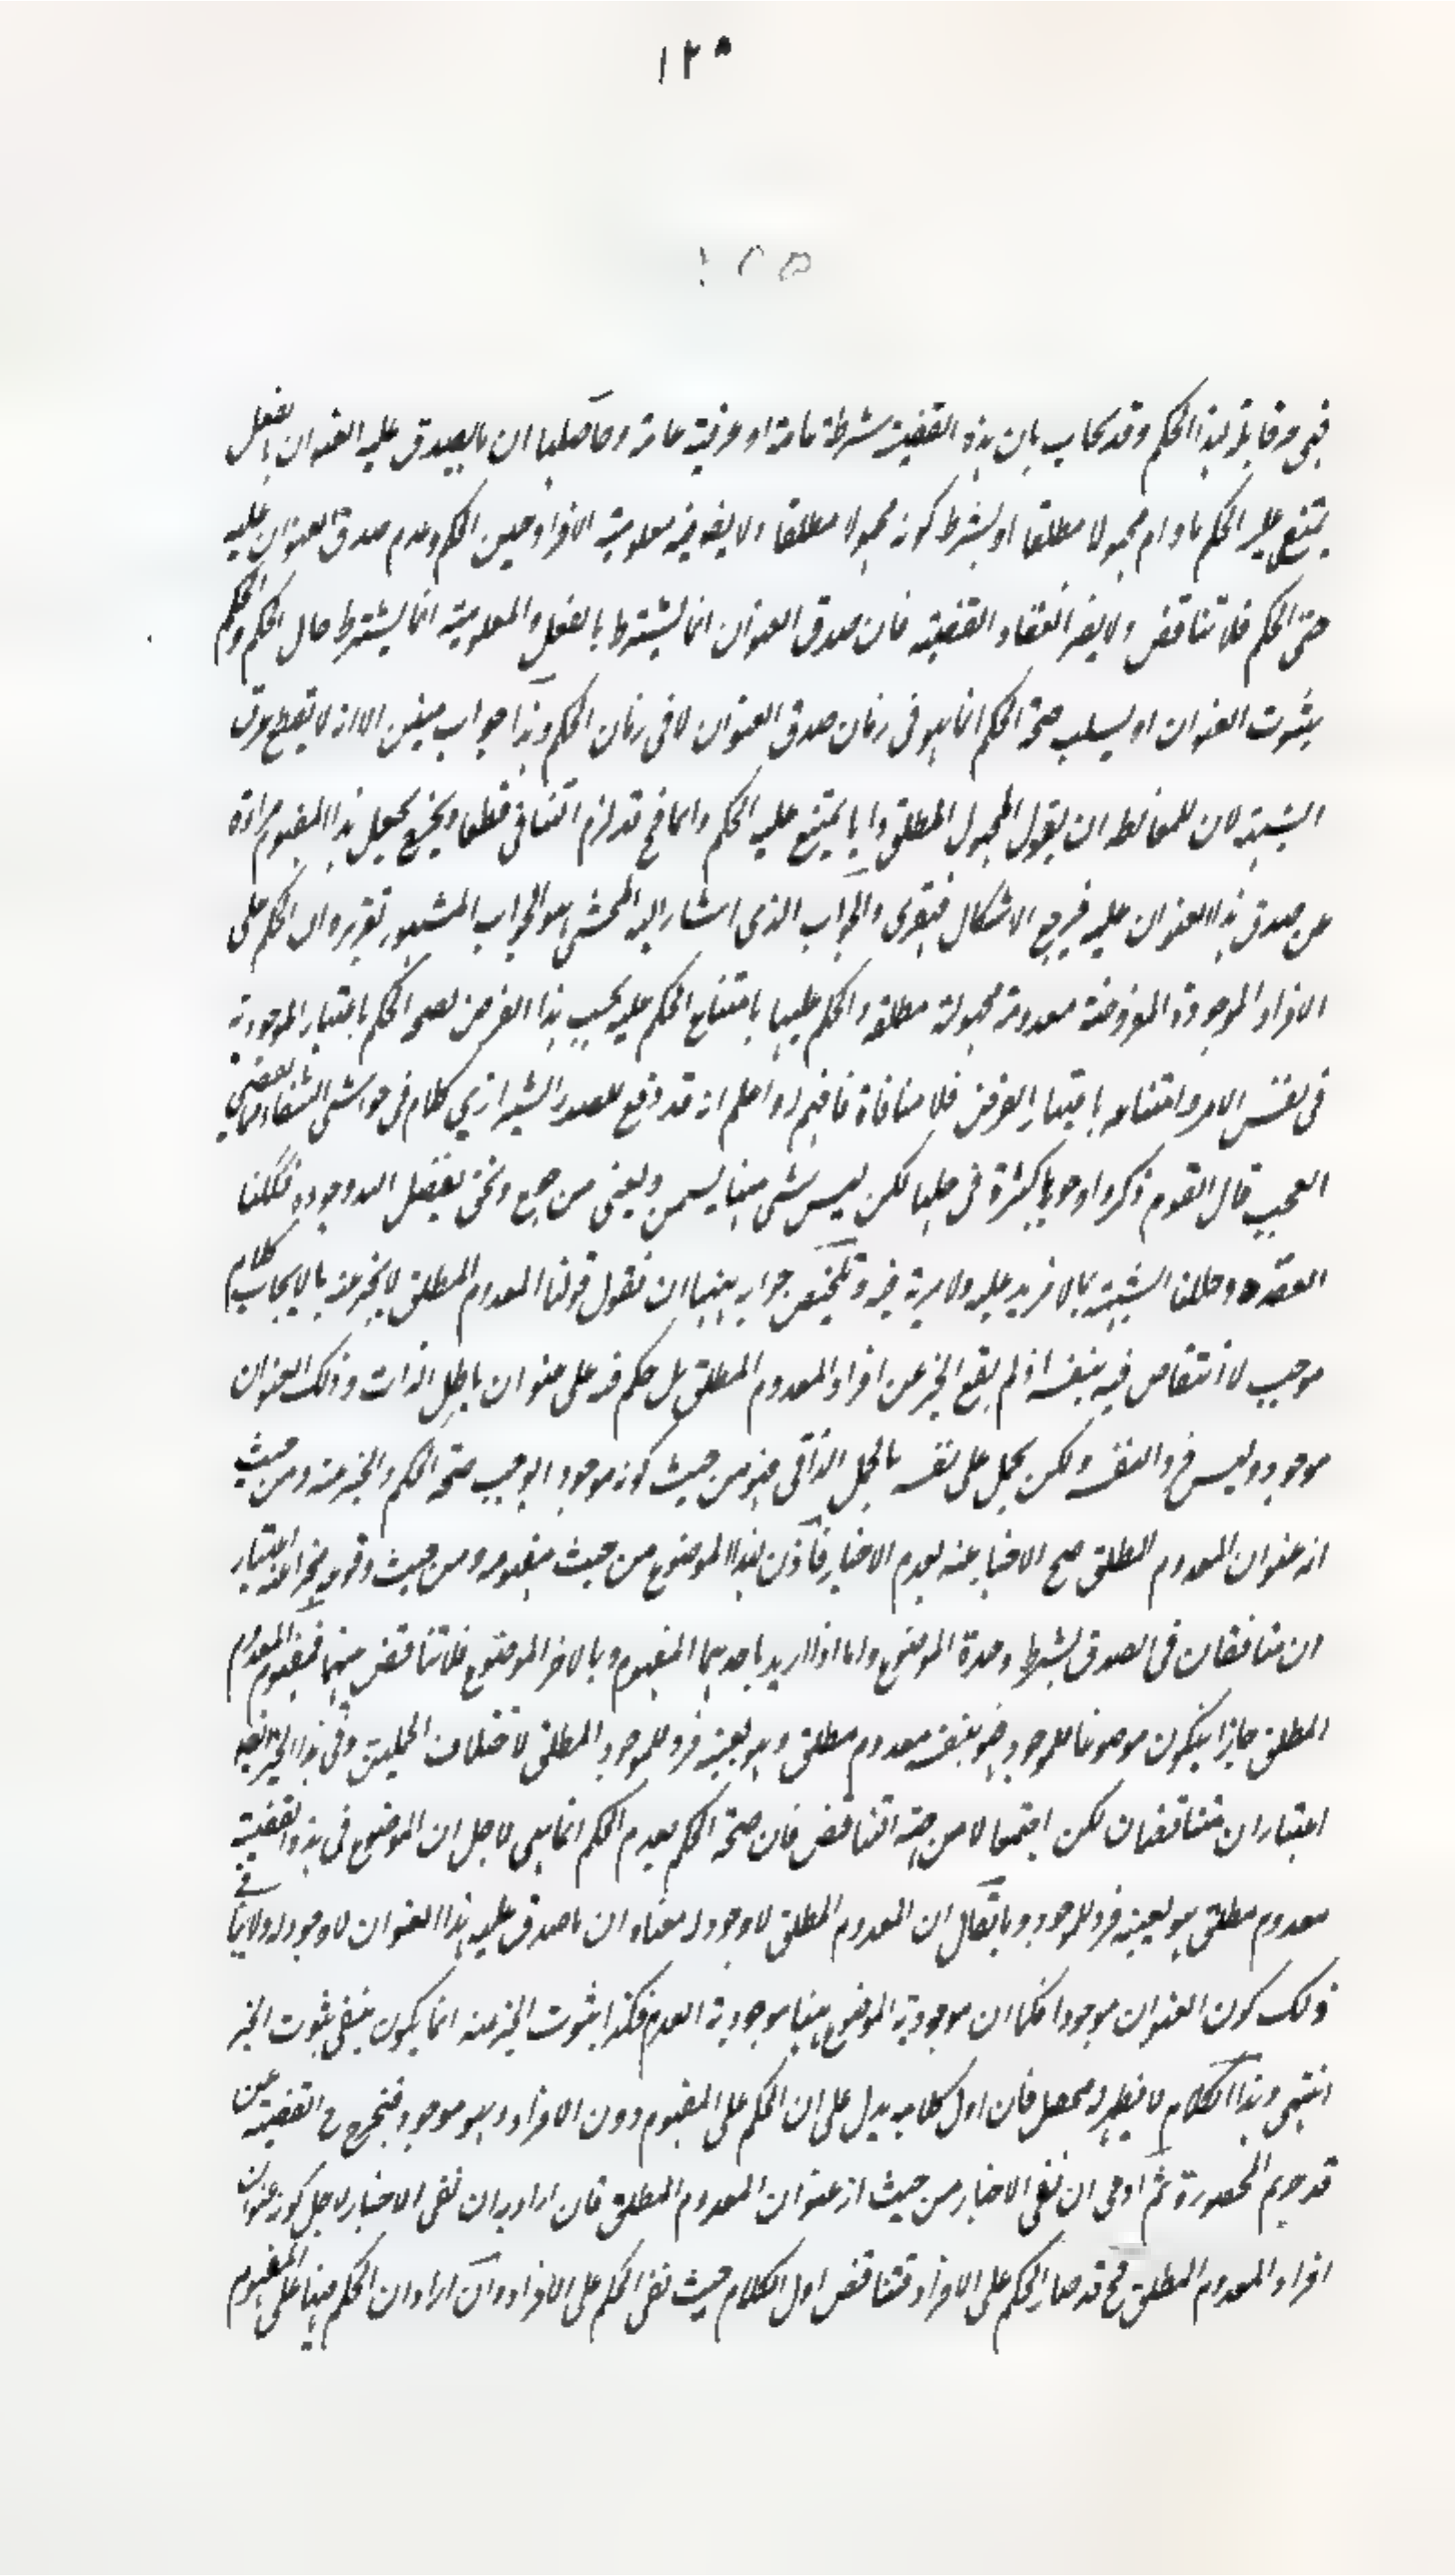 ١٢٥
١٢٥
فهي مرقا بقر بهذا الحكم وقد يجاب بان هذه القضية مشروطة عامة او عرفية عامة وحاصلها ان ما يصدق عليه العنوان بالفعل
يمتنع عليه الحكم ما دام مجهولا مطلقا او بشرط كونه مجهولا مطلقا ولا يضر فيه معلومية الافراد حين الحكم وعدم صدق العنوان عليه
حتى الحكم فلا تناقض ولا يضر انعقاد القضية فان صدق العنوان انما يشترط بالفعل والمعلومية انما يشترط حال الحكم والحكم
بثبوت العنوان او بسلب صحة الحكم انما هو في زمان صدق العنوان لا في زمان الحكم وهذا جواب متين الا انه لا يقطع عرق
الشبهة لان للمغالط ان يقول المجهول المطلق دائما يمتنع عليه الحكم دائما فح قد لزم التنافي قطعا ويخرج بجعل هذا المفهوم مراة
عن صدق هذا العنوان عليه فيرجع الاشكال فيقوى والجواب الذي اشار اليه المحشي هو الجواب المشهور تقريره ان الحكم على
الافراد الموجودة المفروضة معدومة مجهولة مطلقة والحكم عليها بامتناع الحكم عليه بحسب هذا الفرض فصحة الحكم باعتبار الموجودية
في نفس الامر وامتناعه باعتبار الفرض فلا منافاة فافهم واعلم انه قد وقع للصدر الشيرازي كلام في حواشي الشفاء يفضي
العجب قال القوم ذكروا وجوها كثيرة في حلها لكن ليس شيء منها يسمن ويغني من جوع ونحن بفضل الله وجوده فككنا
العقدة وحللنا الشبهة بما لا مزيد عليه ولا مرية فيه وتلخيص جوابه ههنا ان نقول قولنا المعدوم المطلق لا يخبر عنه بالايجاب كلام
موجب لا انتقاض فيه بنفسه اذ لم يقع الخبر عن افراد المعدوم المطلق بل حكم فيه على عنوان باطل الذات وذلك العنوان
موجود وليس فردا لنفسه ولكن يحمل على نفسه بالحمل الذاتي فهو من حيث كونه موجودا يوجب صحة الحكم والخبر عنه ومن حيث
انه عنوان المعدوم المطلق صح الاخبار عنه بعدم الاخبار فاذن لهذا الموضوع من حيث مفهومه ومن حيث وقوعه مخبرا عنه اعتبار
ان متنافيان في الصدق بشرط وحدة الموضوع واما اذا اريد باحدهما المفهوم وبالاخر الموضوع فلا تناقض بينهما فمفهوم المعدوم
المطلق جاز ان يكون موضوعا للموجود فهو بنفسه معدوم مطلق وهو بعينه فرد للموجود المطلق لاختلاف الحملين وفي هذا الخبر ايضا
اعتباران متناقضان لكن اجتمعا لا من جهة التناقض فان صحة الحكم بعدم الحكم انما هي لاجل ان الموضوع في هذه القضية
معدوم مطلق هو بعينه فرد للموجود وما يقال ان المعدوم المطلق لا وجود له معناه ان ما صدق عليه هذا العنوان لا وجود له ولا ينافي
ذلك كون العنوان موجودا فكما ان موجودية الموضوع ههنا موجودية العدم فكذا ثبوت الخبر عنه انما يكون بنفي ثبوت الخبر
انتهى وهذا الكلام لا يظهر له محصل فان اول كلامه يدل على ان الحكم على المفهوم دون الافراد وهو موجود فتخرج ح القضية عن
قد حريم المحصورة ثم ادعى ان نفي الاخبار من حيث انه عنوان المعدوم المطلق فان اراد به ان نفي الاخبار لاجل كونه عنوان
افراد المعدوم المطلق فح قد صار الحكم على الافراد فتناقض اول الكلام حيث نفى الحكم على الافراد وان اراد ان الحكم ههنا على المفهوم